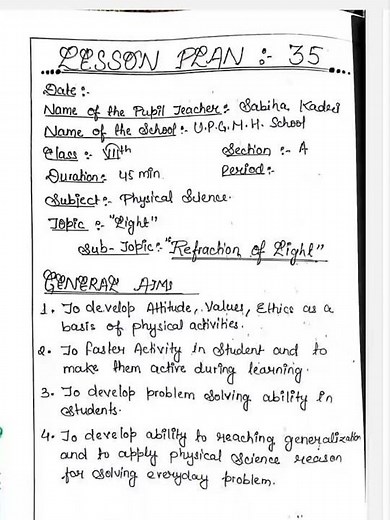 LESSON PLAN :- 35
Date :-
Name of the Pupil Teacher :- Sabiha Kaderi
Name of the School :- U.P.G.M.H. School
Class :- VIIth Section :- A
Duration :- 45 min Period :-
Subject :- Physical Science.
Topic :- "Light"
Sub-Topic :- "Refraction of Light"
GENERAL AIMS
1. To develop Attitude, Values, Ethics as a
basis of physical activities.
2. To faster Activity in student and to
make them active during learning.
3. To develop problem solving ability in
students.
4. To develop ability to reaching generalization
and to apply physical science reason
for solving everyday problem.